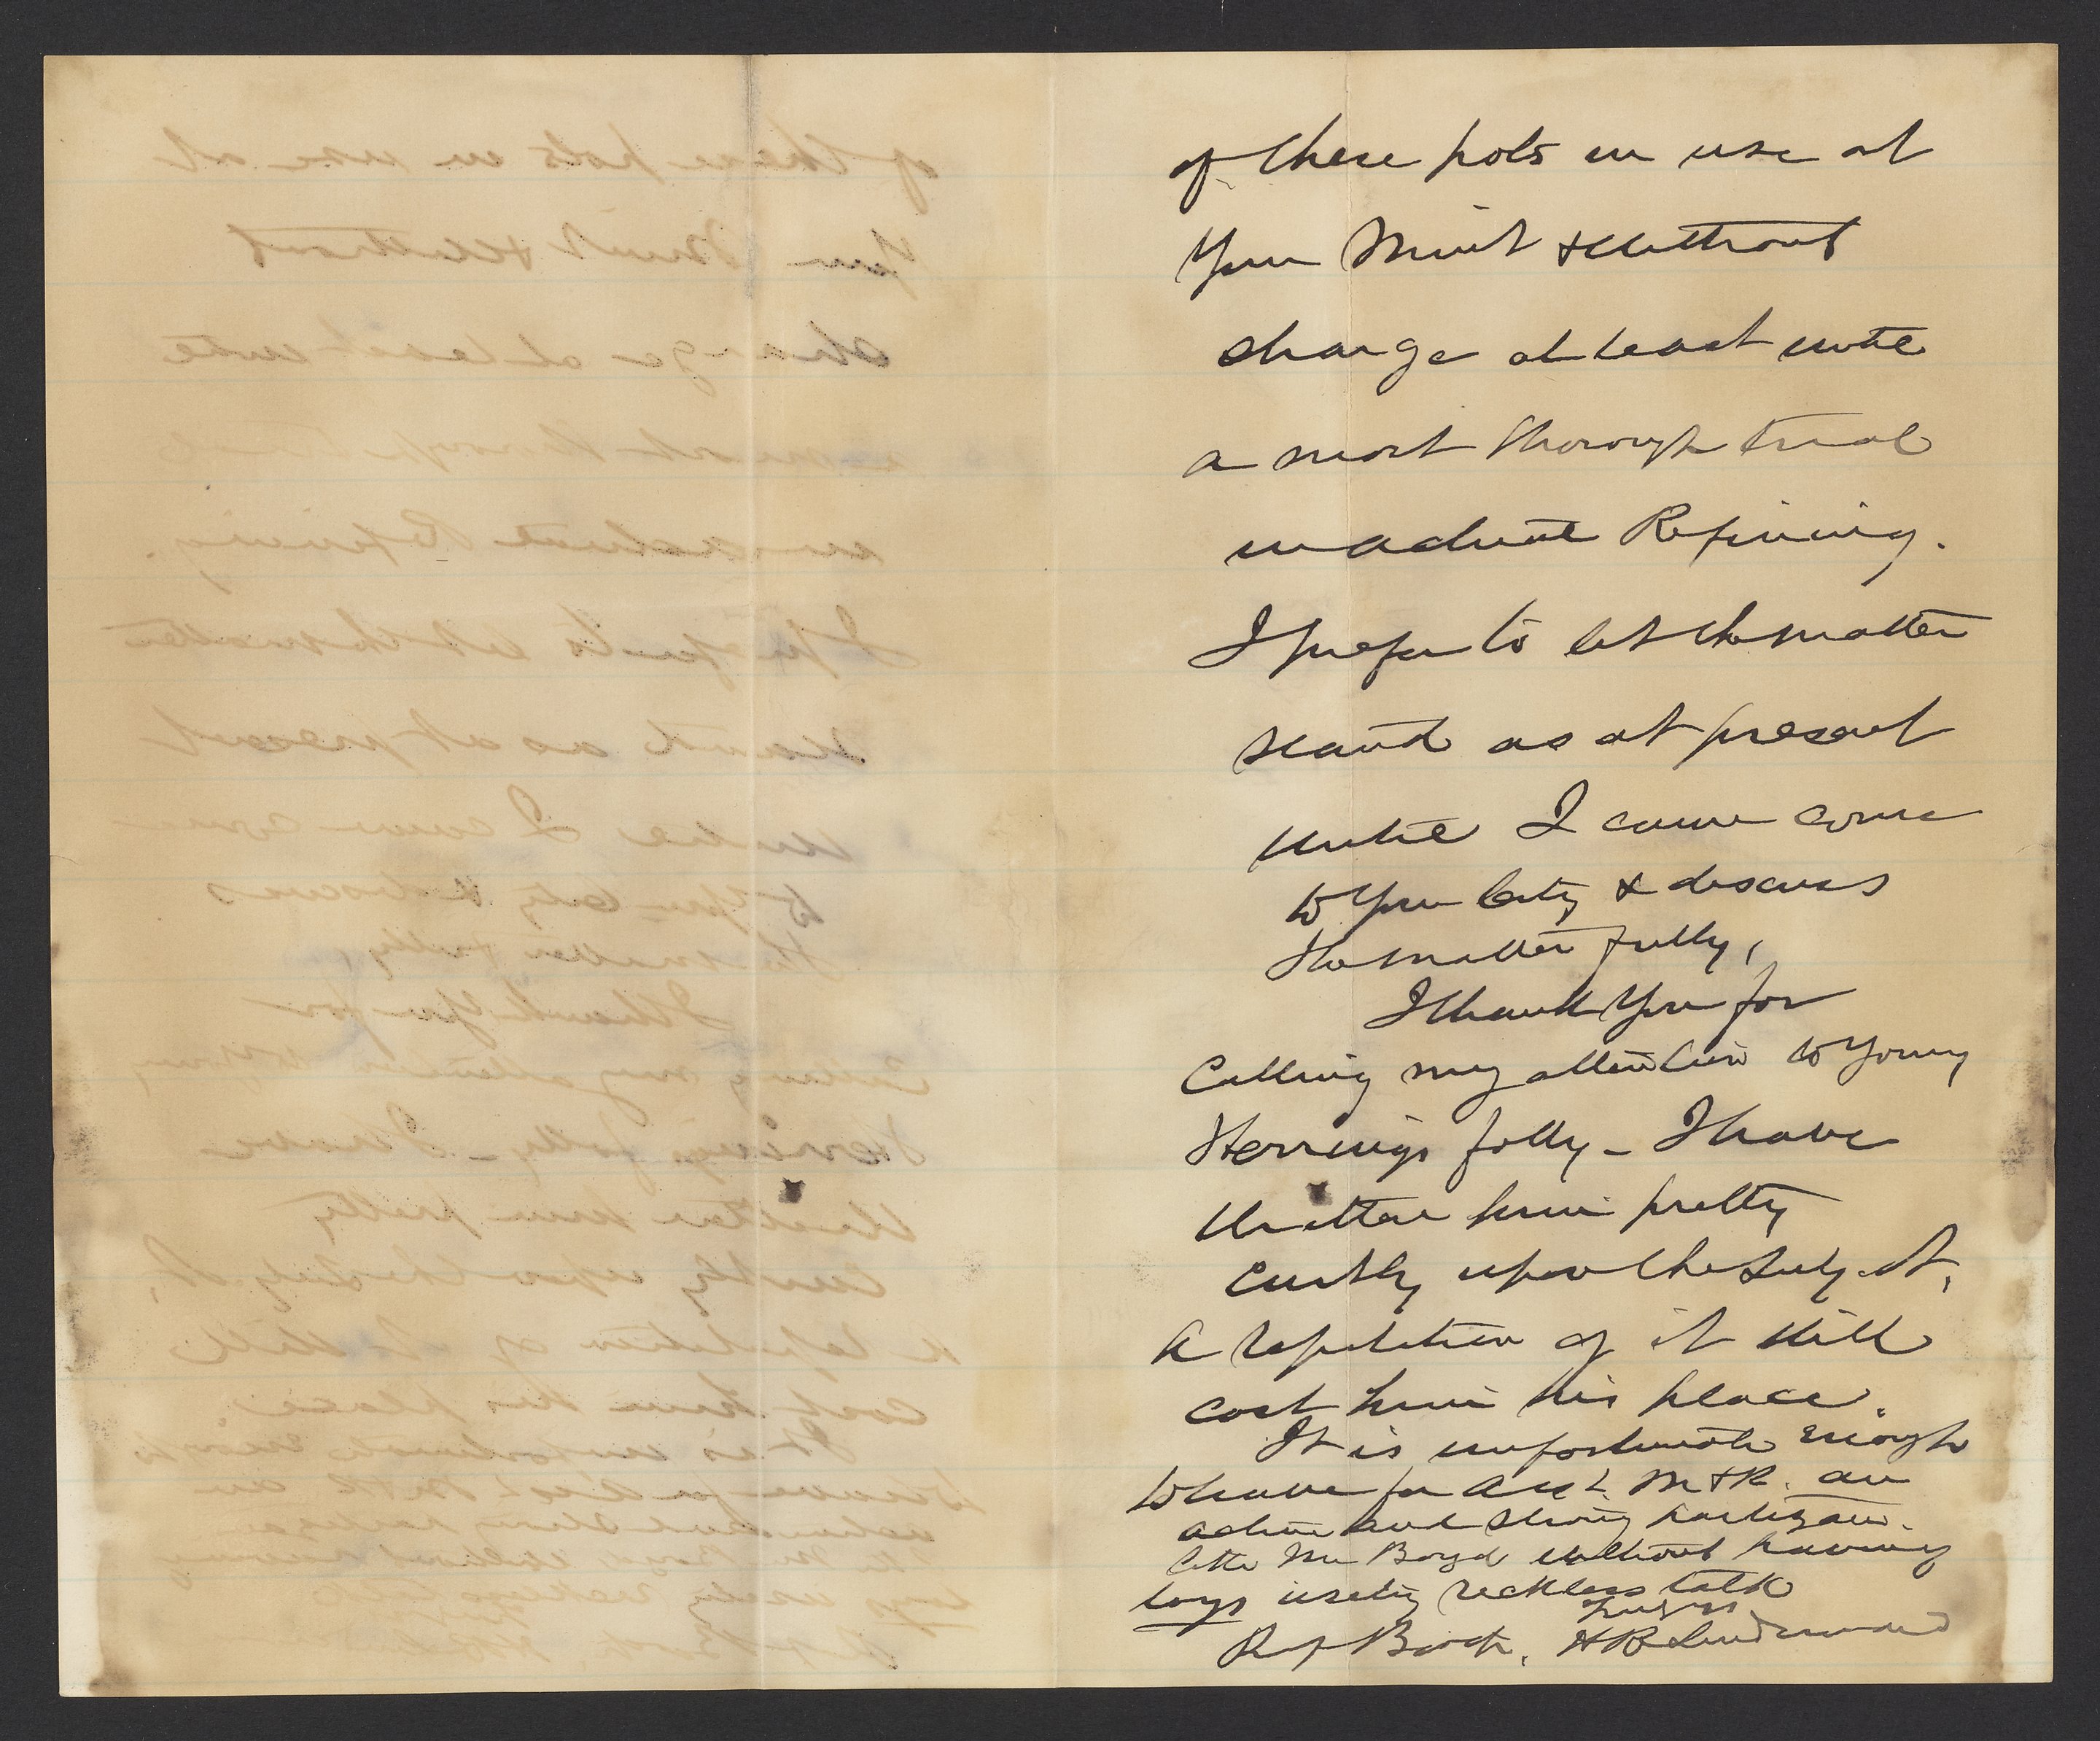 of these pots in use at
your Mint & without
change at least until
a most thorough trial
in actual Refining.
I prefer to let the matter
stand as at present
until I can come
to your City & discuss
the matter fully,
I thank you for
Calling my attention to young
Herrings folly – I have
written him pretty
curtly upon the subject,
A repetition of it will
cost him his place.
It is unfortunate enough
to have for Asst M & R. an
active and strong partizan
like Mr Boyd without having
boys using reckless talk
Truly yrs
H R Linderman